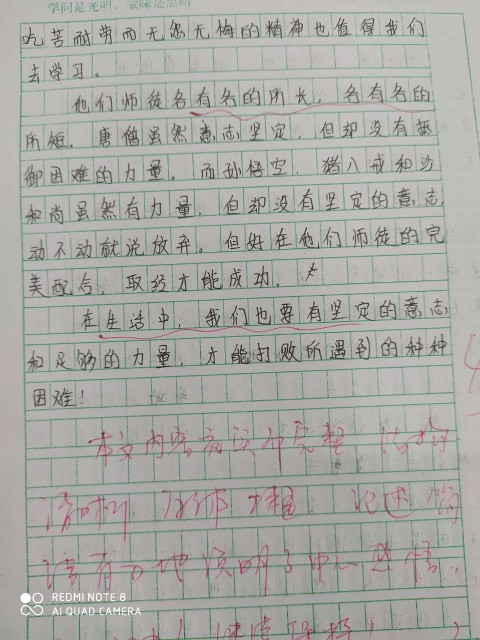 学问是光明，
吃苦耐劳而无怨无悔的精神也值得我们
去学习。
他们师徒各有各的所长，各有各的
所短。唐僧虽然意志坚定，但却没有抵
御困难的力量。而孙悟空，猪八戒和沙
和尚虽然有力量，但却没有坚定的意志
动不动就说放弃。但好在他们师徒的完
美配合，取经才能成功。
在生活中，我们也要有坚定的意志
和足够的力量，才能打败所遇到的种种
困难！
本文内容充实而完整
清晰
有力地说明了中心感悟
REDMI NOTE 8
AI QUAD CAMERA